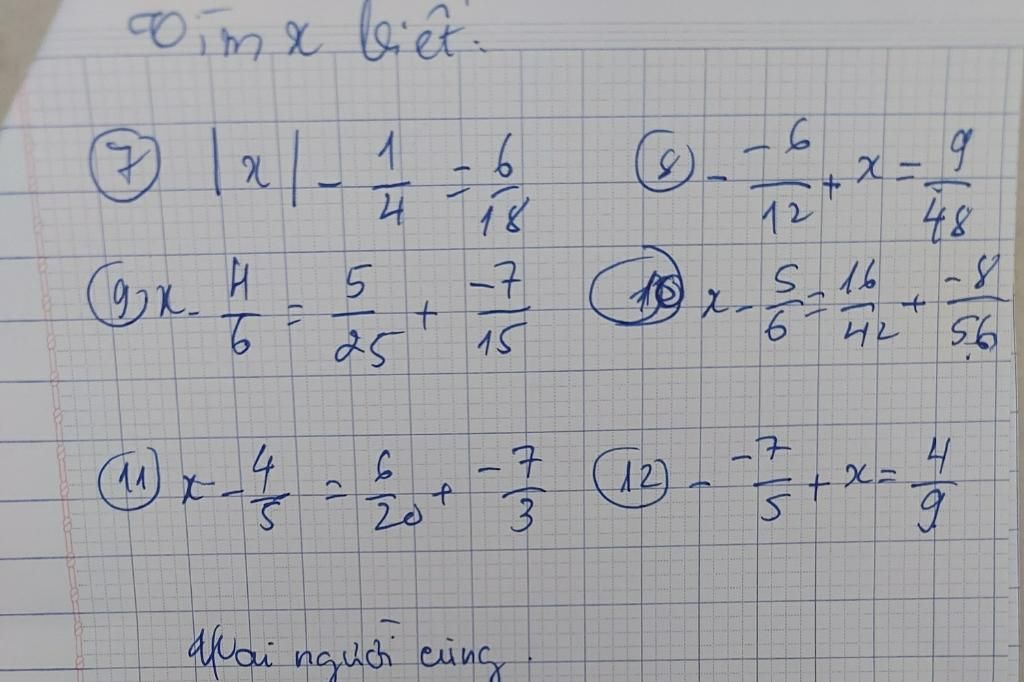 Tìm x biết:
⑦ |x| - 1/4 = 6/18 ⑧ - -6/12 + x = 9/48
⑨ x - 4/6 = 5/25 + -7/15 ⑩ x - 5/6 = 16/42 + -8/56
⑪ x - 4/5 = 6/20 + -7/3 ⑫ - -7/5 + x = 4/9
người cùng.